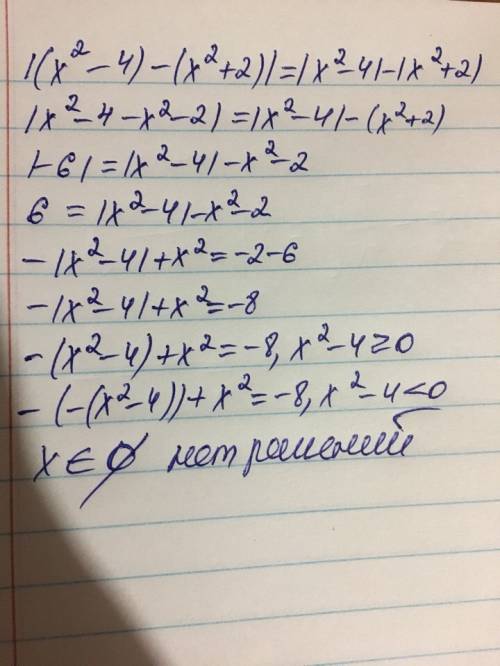 |(x² - 4) - (x² + 2)| = |x² - 4| - |x² + 2)
|x² - 4 - x² - 2| = |x² - 4| - (x² + 2)
|-6| = |x² - 4| - x² - 2
6 = |x² - 4| - x² - 2
- |x² - 4| + x² = -2 - 6
- |x² - 4| + x² = -8
- (x² - 4) + x² = -8, x² - 4 ≥ 0
- (-(x² - 4)) + x² = -8, x² - 4 < 0
x ∈ ∅ нет решений